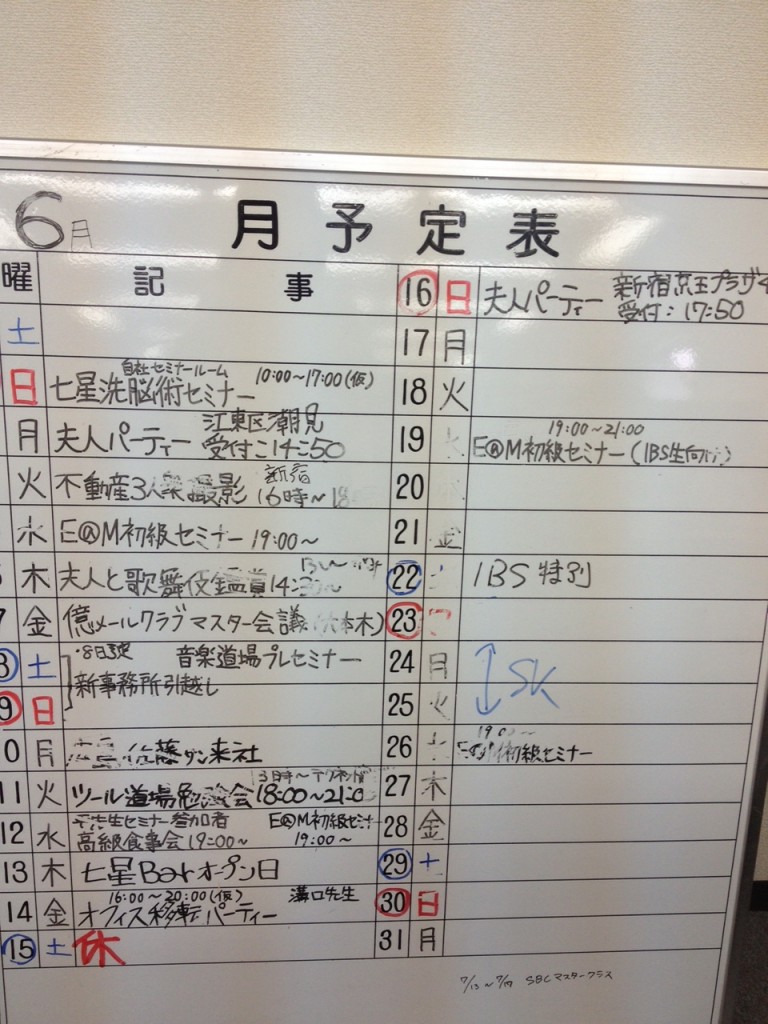 6月 月予定表
曜 記事
土
日 自社セミナールーム 10:00〜17:00(仮)
七星洗脳術セミナー
月 夫人パーティー 江東区潮見
受付:14:50
火 不動産3人衆撮影 新宿
16時〜
水 E@M初級セミナー 19:00〜
木 夫人と歌舞伎鑑賞14:
7 金 億メールクラブマスター会議(六本木)
8 土 ・8日予定 音楽道場プレセミナー
9 日 新事務所引越し
0 月 佐藤サン来社
11 火 ツール道場勉強会18:00〜21:0
12 水 セミナー参加者 E@M初級セミナ
高級食事会19:00〜 19:00〜
13 木 七星Barオープン日
14 金 16:00〜20:00(仮) 溝口先生
オフィス移転パーティー
15 土 休
16 日 夫人パーティー 新宿京王プラザ
受付:17:50
17 月
18 火
19 水 19:00〜21:00
E@M初級セミナー(IBS生向け)
20
21 金
22 土 IBS特別
23 日
24 月 SK
25 火
26 19:00〜
初級セミナー
27 木
28 金
29 土
30 日
31 月
7/13〜7/19 SBCマスタークラス